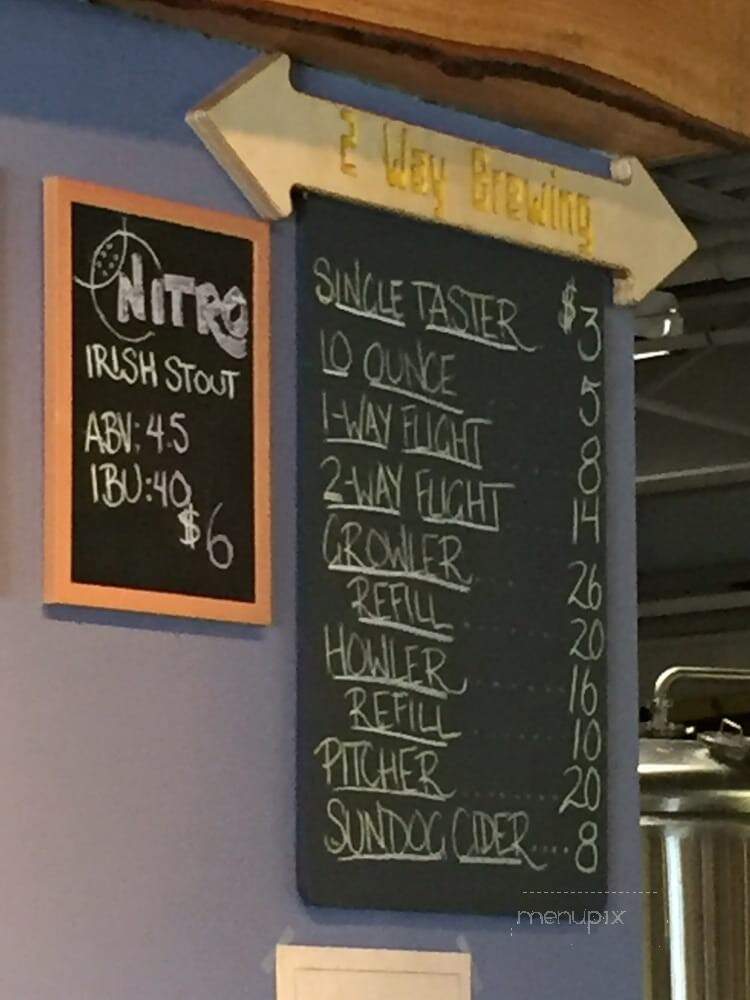 2 Way Brewing
NITRO
IRISH STOUT
ABV: 4.5
IBU: 40
$6
SINGLE TASTER $3
10 OUNCE 5
1-WAY FLIGHT 8
2-WAY FLIGHT 14
GROWLER 26
REFILL 20
HOWLER 16
REFILL 10
PITCHER 20
SUNDOG CIDER.... 8
menupix